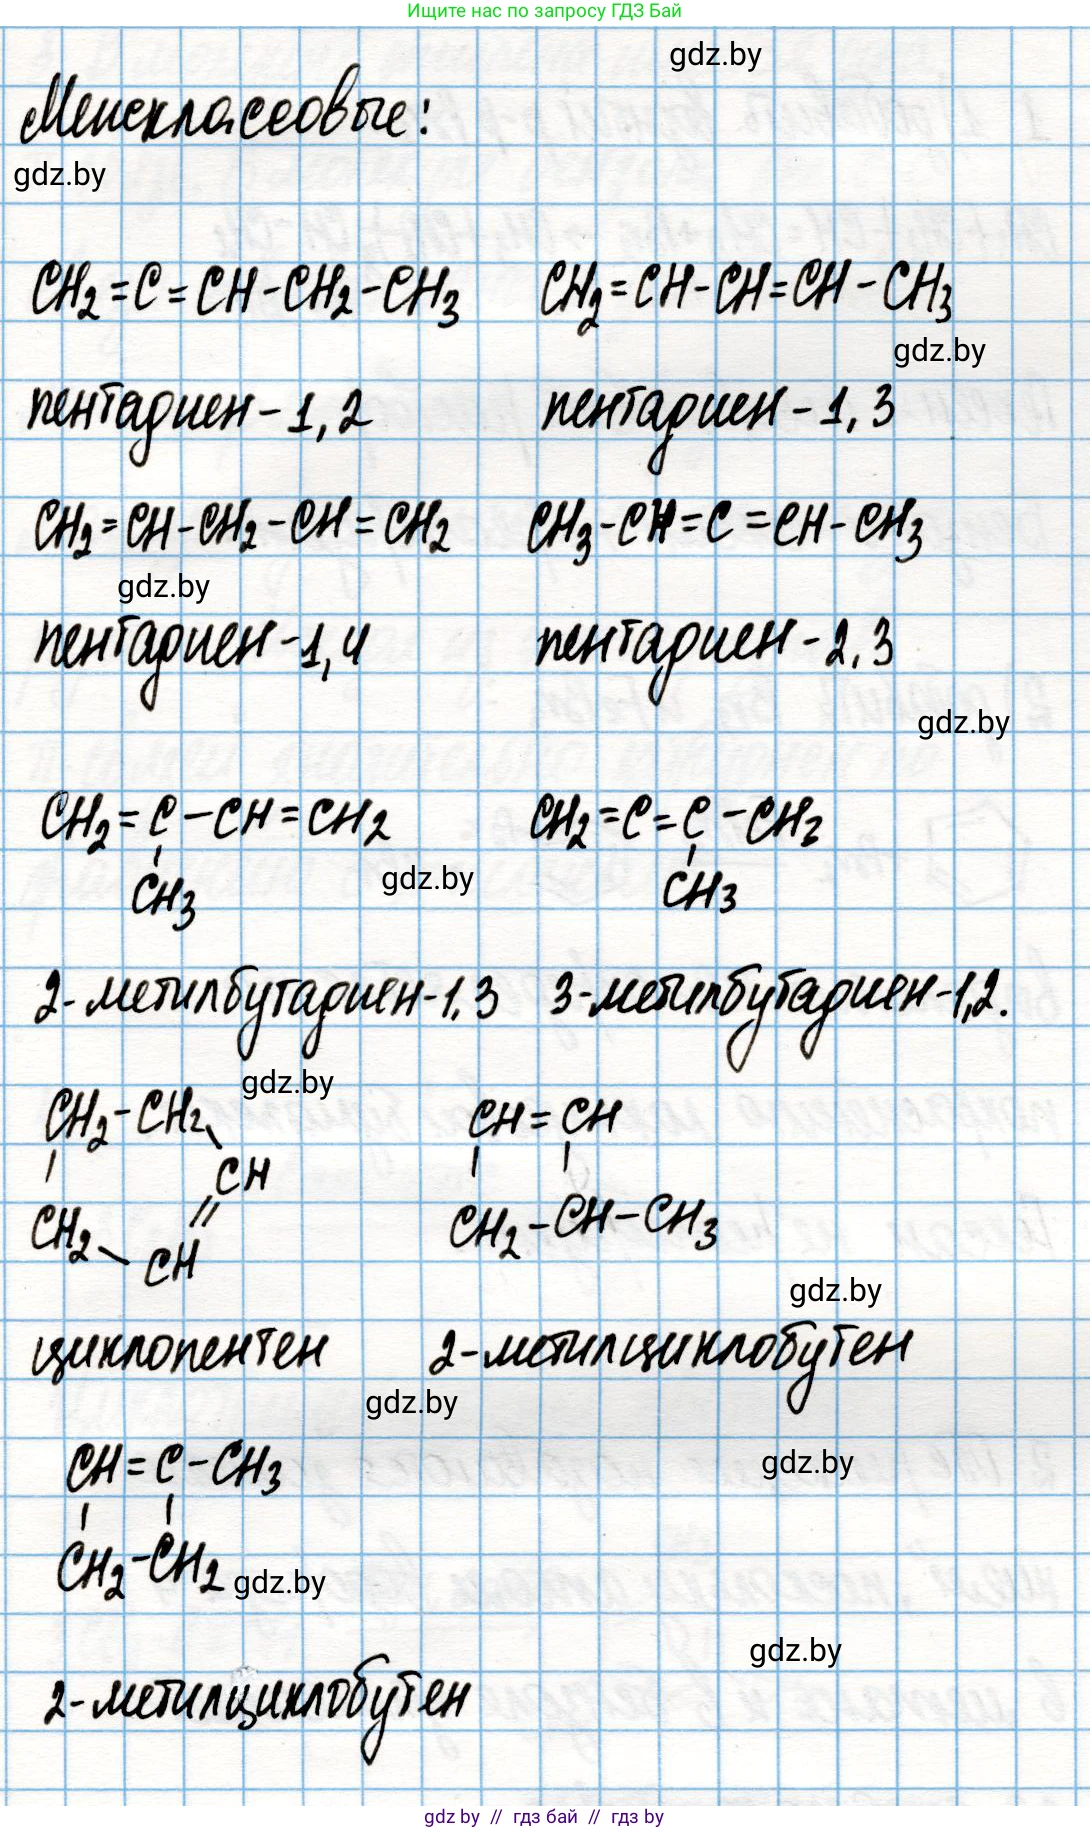 Ищите нас по запросу ГДЗ Бай
gdz.by
Межклассовые:
gdz.by
CH2=C=CH-CH2-CH3 CH2=CH-CH=CH-CH3
gdz.by
пентадиен-1,2 пентадиен-1,3
CH2=CH-CH2-CH=CH2 CH3-CH=C=CH-CH3
gdz.by
пентадиен-1,4 пентадиен-2,3
gdz.by
CH2=C-CH=CH2 CH2=C=C-CH2
gdz.by
CH3 CH3
2-метилбутадиен-1.3 3-метилбутадиен-1,2.
gdz.by
CH2-CH2 CH=CH
CH
CH2 CH2-CH-CH3
CH
gdz.by
циклопентен 2-метилциклобутен
gdz.by
CH=C-CH3
gdz.by
CH2-CH2
gdz.by
gdz.by
2-метилциклобутен
gdz by // гдз бай // гдз by